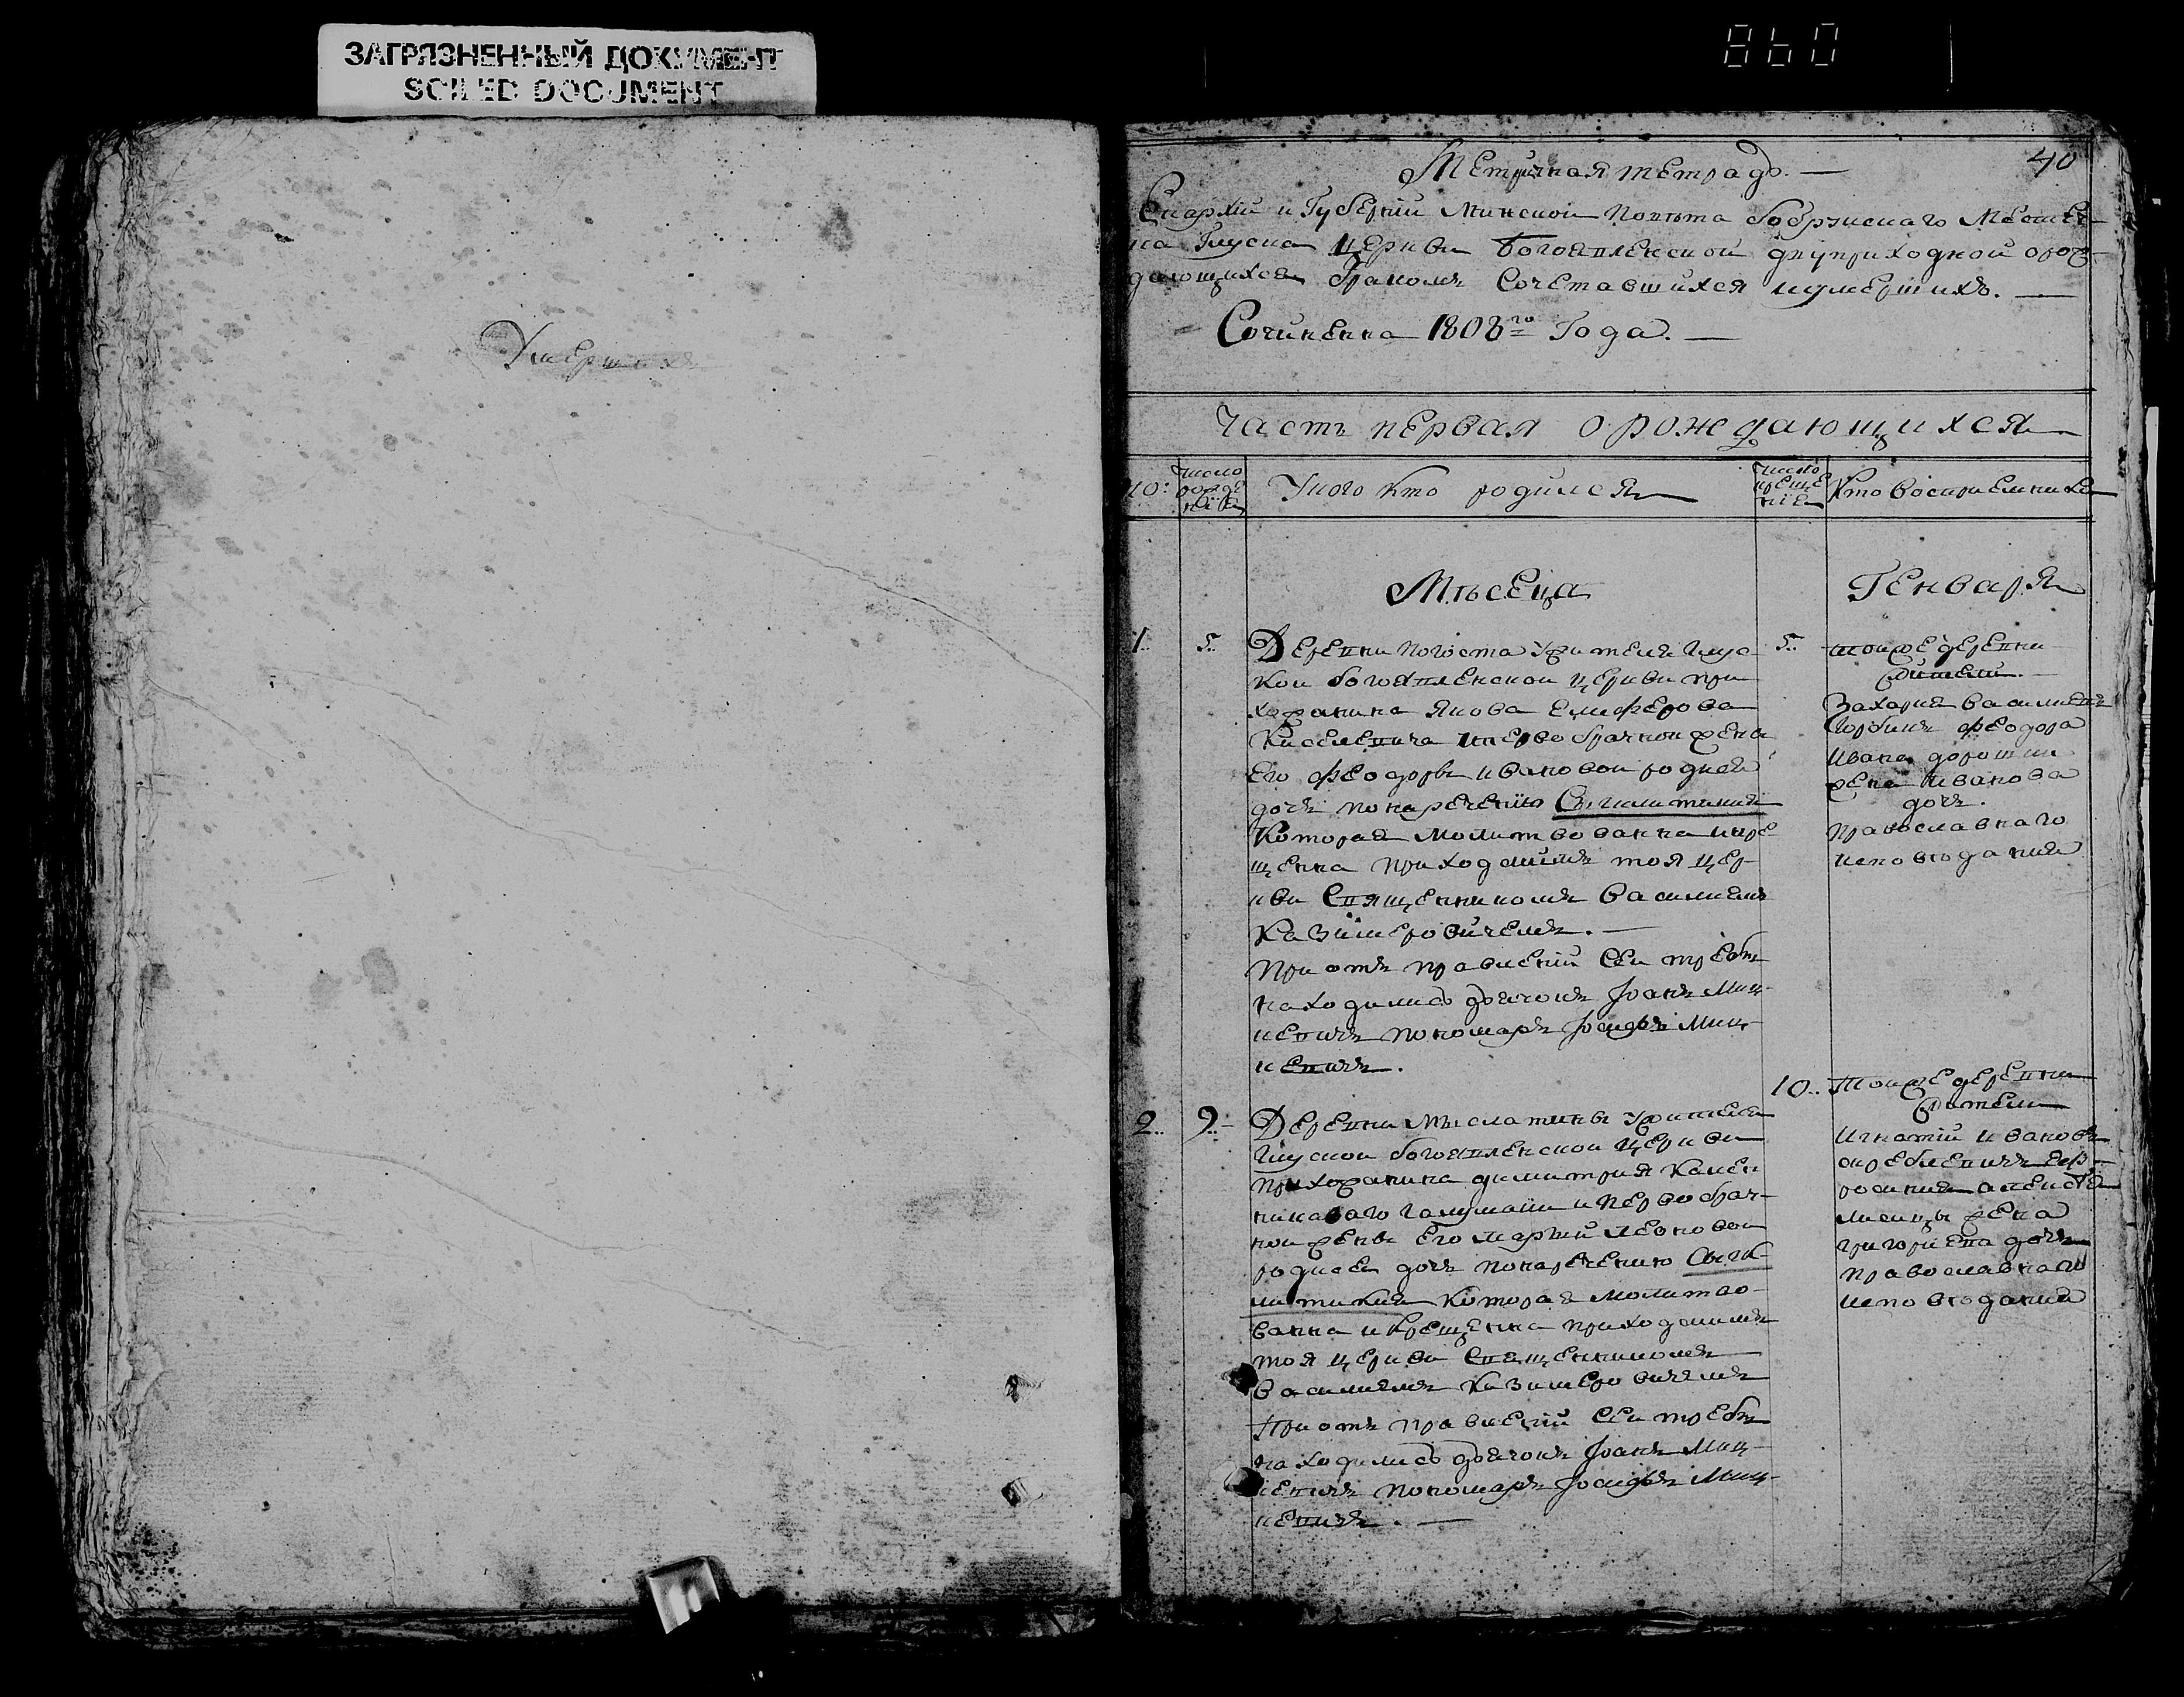 ЗАГРЯЗНЕННЫЙ ДОКУМЕНТ
SOILED DOCUMENT
860
Умерших
40
Метричная тетрадь.
Епархіи и Губерніи Минской Повѣта бобруискаго Местеч-
ка Глуска церкви Богоявленской двуприходной орож-
дающихся бракомъ Сочетавшихся иумершихъ.
Сочиненна 1808го Года.
Часть первая орождающихся
число рожде нія
Укого кто родился
число креще нія
Кто воспріемника
Мѣсеца
Генваря
1.. 5..
Деревни погоста Жителя Глус-
кой богоявленской церкви при
хожанина Якова Елиферова
Киселевича ипервобрачной жены
Его феодоры ивановой родися
дочь понаречению Сынклитикия
Которая молитвованна икре
щенна приходскимъ тоя цер-
кви Священникомъ василиемъ
Казимеровичемъ.
Приотъ правлении Сеи требы
находились дьячокъ Іоанъ Миц-
кевичъ пономарь Іосифъ Миц-
кевичъ.
5..
тоижедеревни
жители.
Захария василиевъ
феодора
Ивана
жена иванова
дочь.
православнаго
исповѣдания
2.. 9..
Деревни Мыслатины Жителя
Глускои богоявленской Церкви
прихожанина димитрия
ипервобрач-
нои жены его Марии
родися дочь понаречению Сынк-
литикия Которая молитво-
ванна икрещенна приходскимъ
тоя церкви Священникомъ
василиемъ Казимеровичемъ
Приотъ правлении Сеи требы
находились дьячокъ Іоанъ Миц-
кевичъ пономарь Іосифъ Миц-
кевичъ.
10..
Тоижедеревни
жители
Игнатий ивановъ
жена
дочь
православнаго
исповѣдания